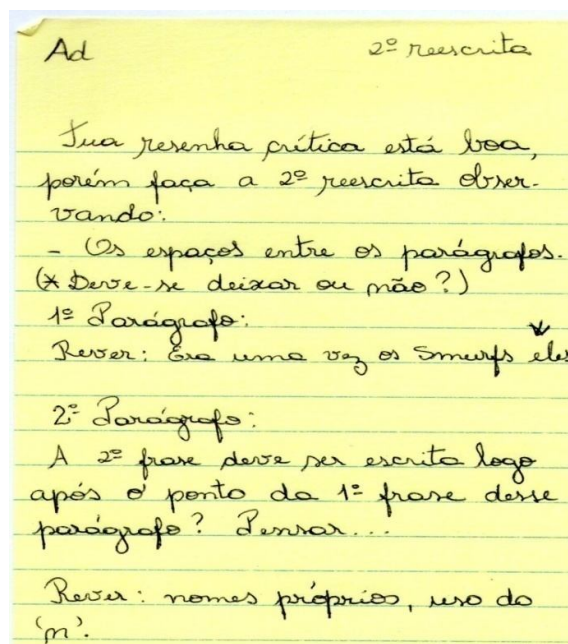 Ad 2ª reescrita
Tua resenha crítica está boa,
porém faça a 2ª reescrita obser-
vando:
- Os espaços entre os parágrafos.
(* Deve-se deixar ou não?)
1º Parágrafo:
Rever: Era uma vez os Smurfs eles
2º Parágrafo:
A 2ª frase deve ser escrita logo
após o ponto da 1ª frase desse
parágrafo? Pensar...
Rever: nomes próprios, uso do
'm'.